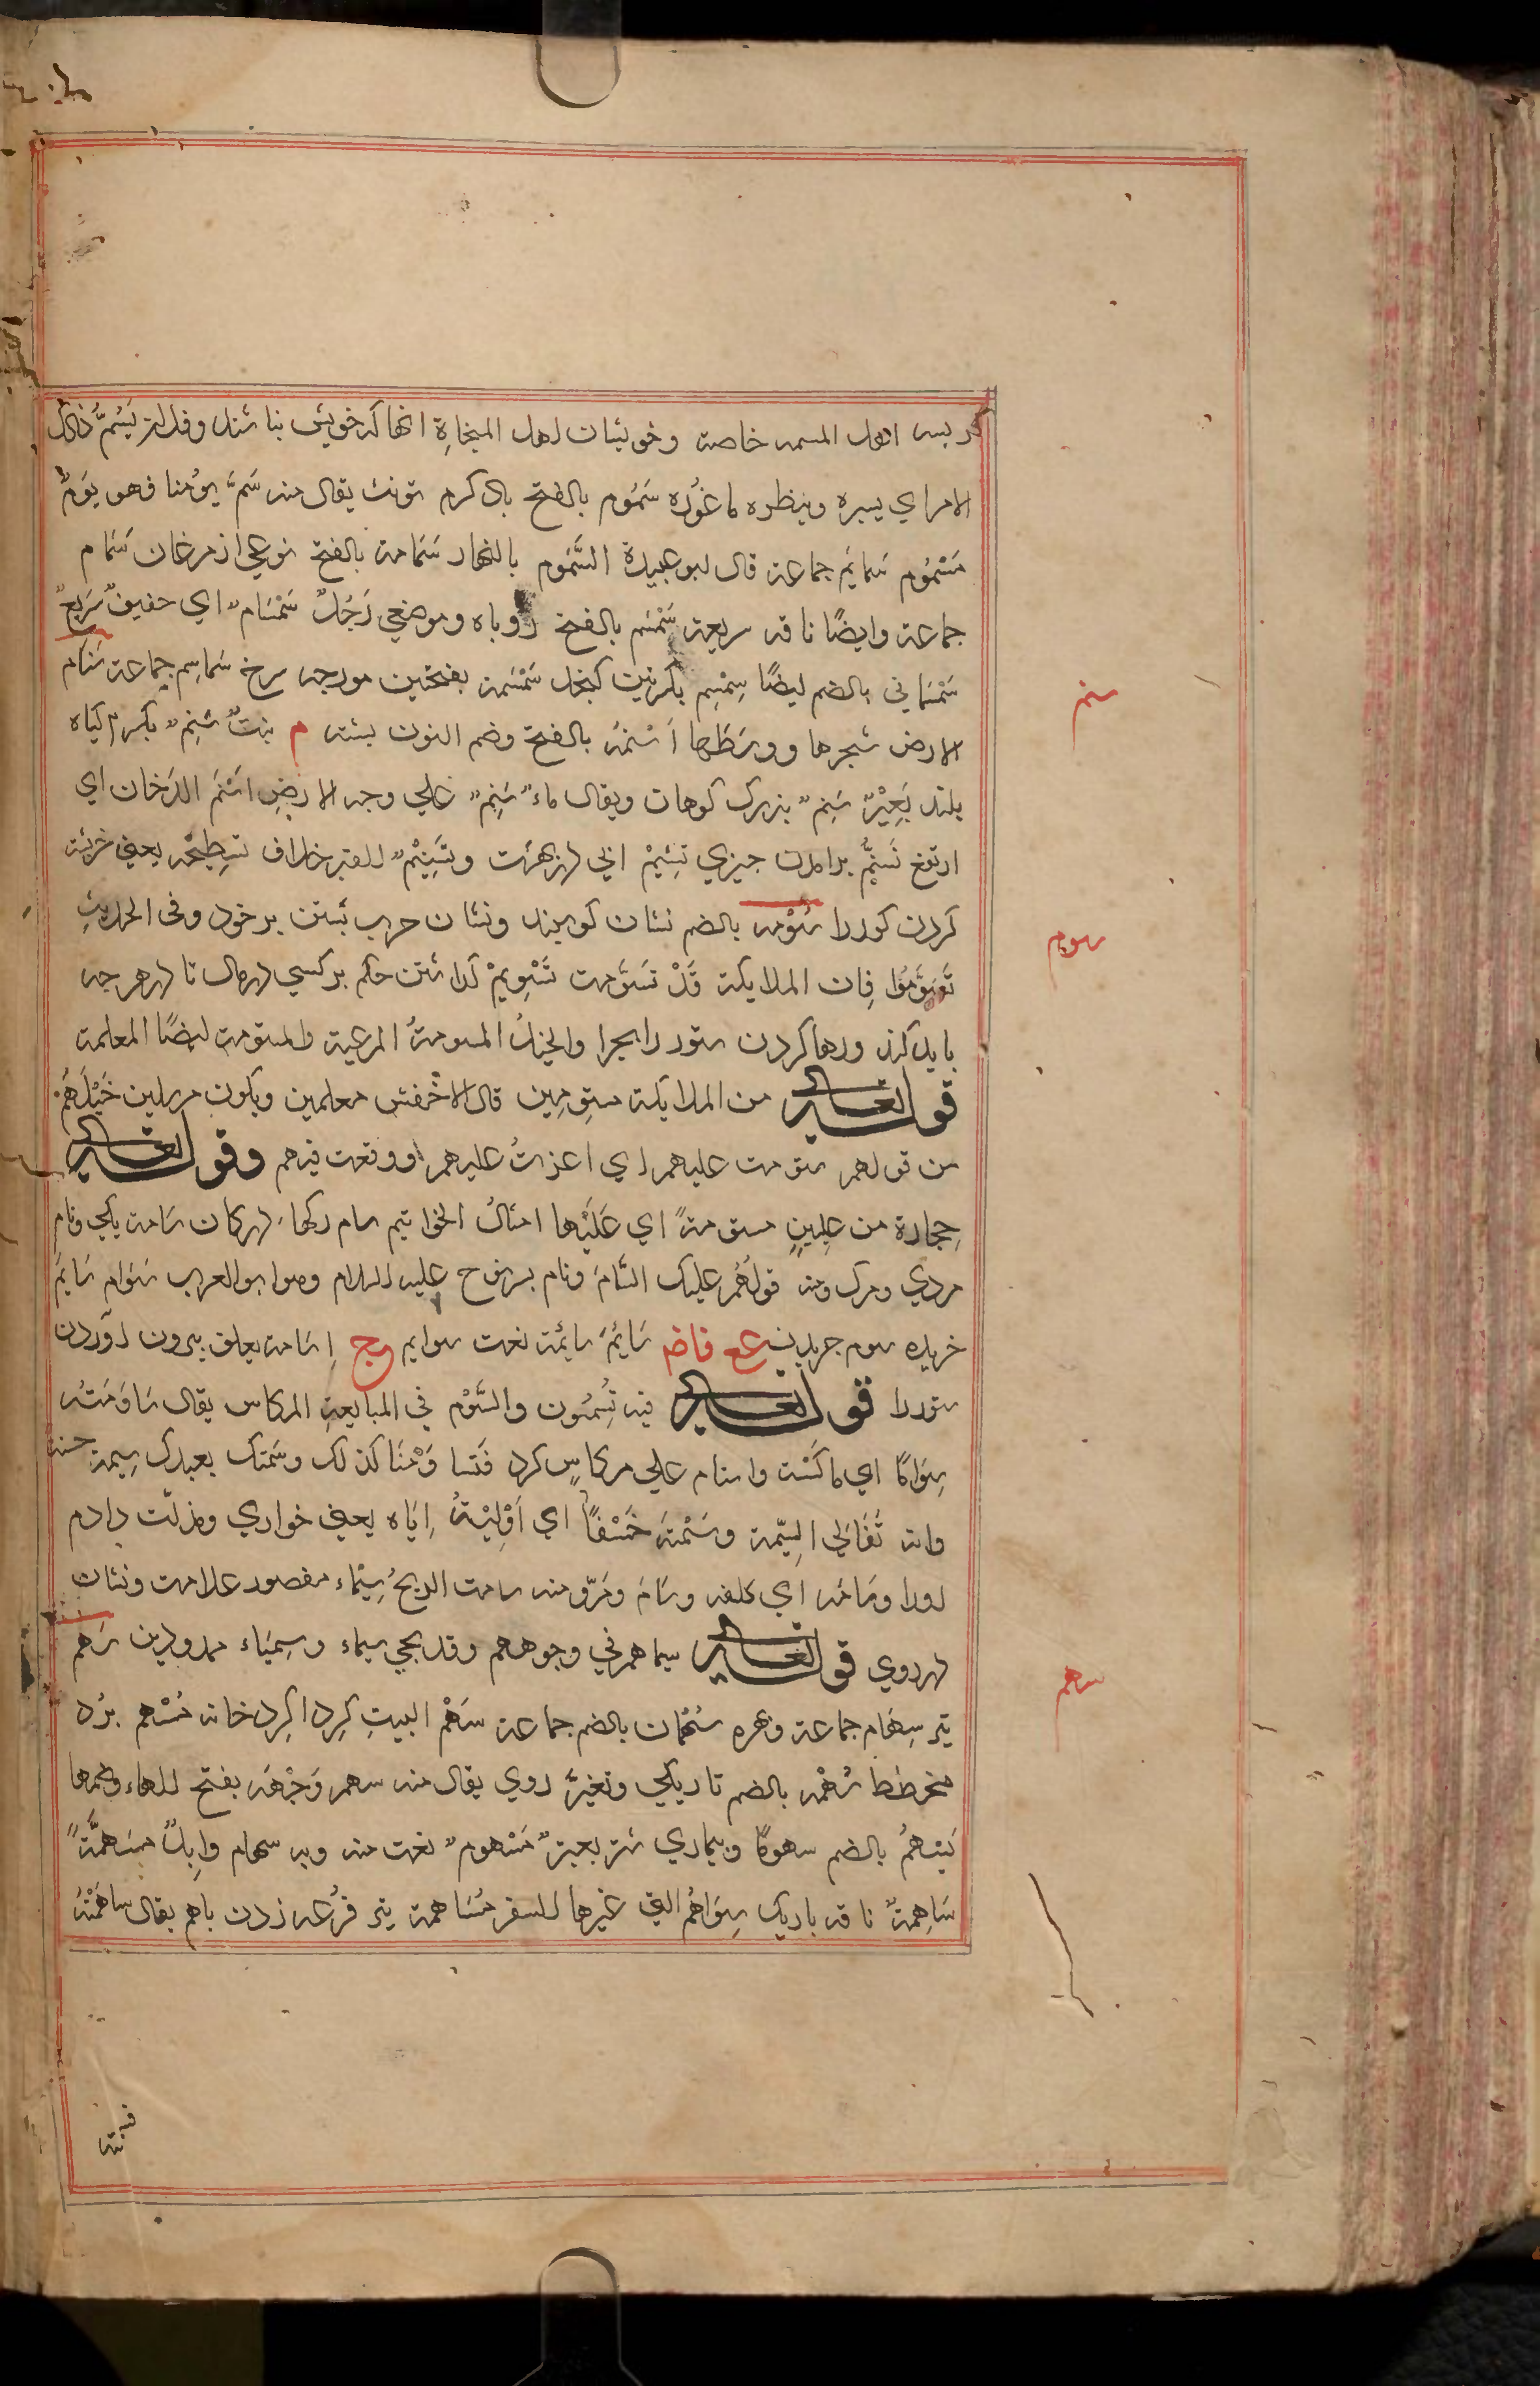 اهل المسمه خاصة وخويشان اهل المنحاة انها که خويش نباشند وفلان يَسُمُّ ذلک
الامر اي يسبره وينظره ما غَوْره سَمُوم بالفتح باد کرم تونث يقال منه سَمَّ يومُنا فهو يَومٌ
مَسْمُوم سَمايَم جماعة قال ابو عبيدة السَّمُوم بالنهار سَمَامة بالفتح نوعي از مرغان سَمَام
جماعة وايضًا ناقه سريعة سَمْسَم بالفتح روباه وموضعي رَجُلٌ سَمْسَام اي خفيفٌ سَريعٌ
سَمْسَاني بالضم ايضًا سِمْسِم بکسرتين کنجد سَمْسَمة بفتحتين مورچه سرخ سَماسِم جماعة سَنام
سنم
الارض شجرها ووسَطُها اَسْنمَة بالفتح وضم النون پشته م نبتٌ سَنِمٌ بکسر م کياه
بلند بَعِيْرٌ سَنِمٌ بزرک کوهان ويقال ماءٌ سَنِمٌ علي وجه الارضِ اَسْنَمَ الدَخان اي
ارتفع تَسَنُّم برامدن چيزي تَسْنِيمْ ابي در بهشت وتَسْنِيْمٌ للقبر خلاف تسطيحه يعني خرپشته
کردن کور را سُوْمه بالضم نشان کوسپند ونشان حرب بستن بر خود وفى الحديثِ
سوم
تَسَوَّمُوا فاِن الملايکة قَدْ تسَوَّمت تَسْوِيمْ کذاشتن حکم بر کسي در مال تا در هرچه
بايد کند ورها کردن ستور را بچرا والخيلُ المسومةُ المرعية والمسَوَّمة ايضًا المعلمة
قوله تعالى من الملايکة مسَوِمين قال الاخفش معلمين ويکون مرسلين خَيْلَهُمْ
من قولهم سَوَمت عليهم اي اعزتُ عليهم ووقعت فيهم وقوله تعالى
حِجارة من طِينٍ مسومةً اي عَلَيْها امثالُ الخواتيم سام رکها زر کان سَامة يکي ونام
مردي ومرک ومنه قولُهُم عليک السَّامَ ونام پسر نوح عليه السلام وهو ابو العرب سَوام سَايمَ
خريده سوم چريدن مع فاض سَايَمَ سايمَة نعت سوايم مج اِسَامة يعلق بيرون اوردن
ستور را قوله تعالى فيه تُسِيْمُون والسَّوْم في المبايعةِ المرکاس يقال سَاوَمتُه
سِوَامًا اي ماکَسْت واستام علي مرکاسٍ کرد فَتَسا وَمْنَا کذلک وسُمتک بعبدک سِيمة حسنة
وانه تَغَالي السِّيْمة وسُمْتَه خَسْفًا اي اَوْلَيْتُهُ اِيّاه يعني خواري ومذلت دادم
اورا وسَامَه اي کلفه وسَامَ ومَرَّ ومنه سامت الريحُ سِيْمَاء مقصور علامت ونشان
در روي قوله تعالى سيماهم في وجوههم وقد يجي سيماء وسِيميَاء ممدودين سَهْم
سهم
تير سِهَام جماعة وبهره سُهمَان بالضم جماعة سَهْمُ البيتِ کِرد اکِرد خانه مُسْهم بُرد
مخطط سُهْمَه بالضم تاريکي وتغيرِ روي يقال منه سهم وَجْهَه بفتح الهاء وضمها
يَسْهمُ بالضم سهومًا وبيماري شتر بعيرٌ مَسْهومٌ نعت منه وبه سهام واِبِلٌ مسَهمَّةٌ
سَاهِمة ناقه باريک سِوَاهُم التي غيرها للسفر مُسَاهمة تير قُرعه زدن باهم يقال ساهَمْتُهُ